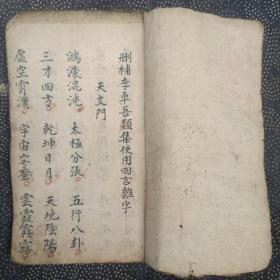 刪補李卓吾類集使用四言雜字
天文門
鴻濛混沌 太極分張 五行八卦
三才四方 乾坤日月 天地陰陽
虛空霄漢 宇宙穹蒼 雲霞霧露